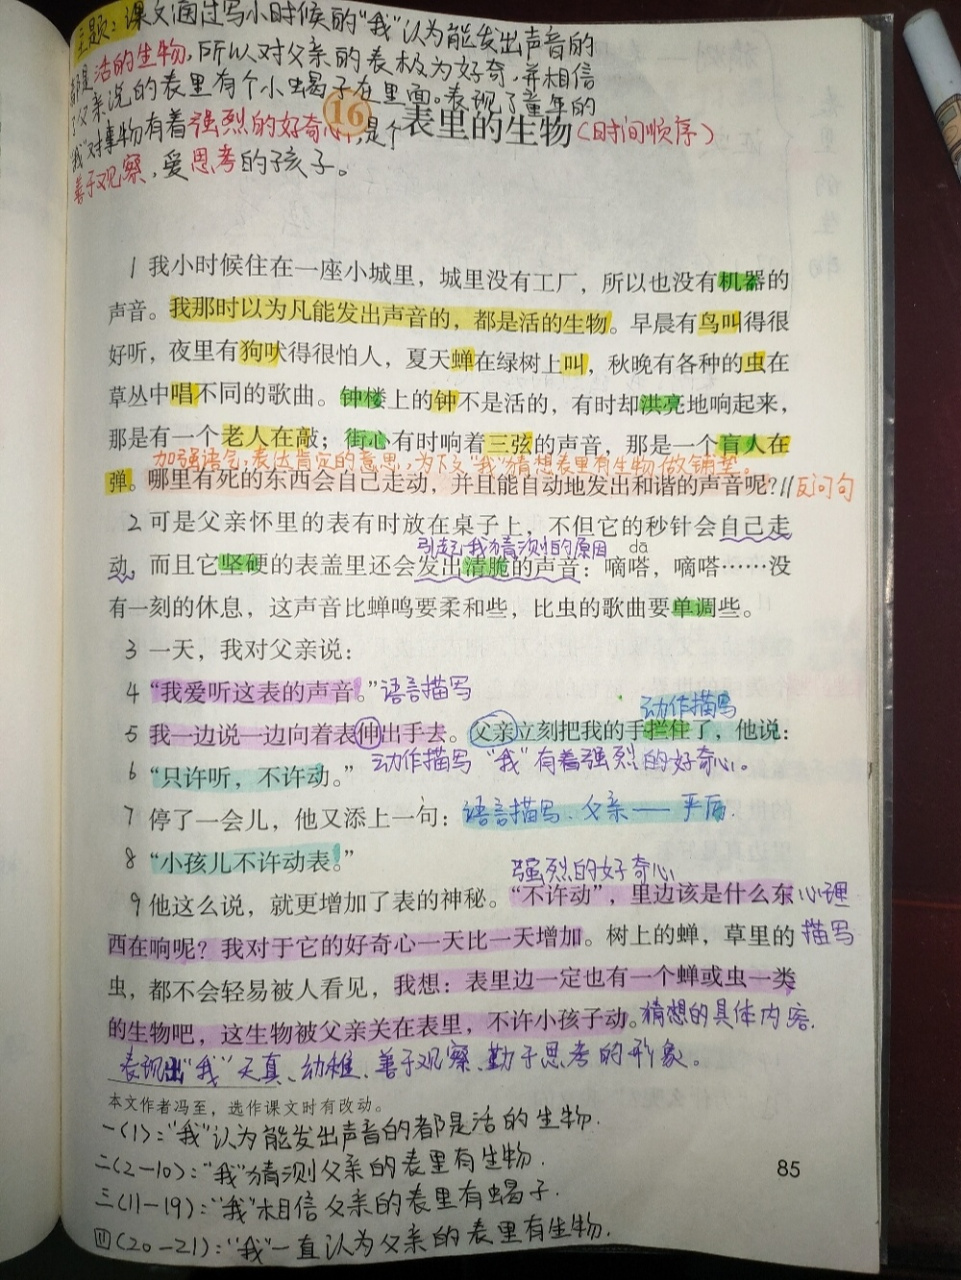 主题：课文通过写小时候的“我”认为能发出声音的
都是活的生物，所以对父亲的表极为好奇，并相信
了父亲说的表里有个小虫蝎子在里面。表现了童年的
“我”对事物有着强烈的好奇心，是个
善于观察，爱思考的孩子。
16 表里的生物（时间顺序）
1 我小时候住在一座小城里，城里没有工厂，所以也没有机器的
声音。我那时以为凡能发出声音的，都是活的生物。早晨有鸟叫得很
好听，夜里有狗吠得很怕人，夏天蝉在绿树上叫，秋晚有各种的虫在
草丛中唱不同的歌曲。钟楼上的钟不是活的，有时却洪亮地响起来，
那是有一个老人在敲；街心有时响着三弦的声音，那是一个盲人在
加强语气，表达肯定的意思，为下文“我”猜想表里有生物做铺垫。
弹。哪里有死的东西会自己走动，并且能自动地发出和谐的声音呢？// 反问句
2 可是父亲怀里的表有时放在桌子上，不但它的秒针会自己走
引起我猜测的原因 dā
动，而且它坚硬的表盖里还会发出清脆的声音：嘀嗒，嘀嗒……没
有一刻的休息，这声音比蝉鸣要柔和些，比虫的歌曲要单调些。
3 一天，我对父亲说：
4 “我爱听这表的声音。”语言描写
动作描写
5 我一边说一边向着表伸出手去。父亲立刻把我的手拦住了，他说：
动作描写 “我”有着强烈的好奇心。
6 “只许听，不许动。”
7 停了一会儿，他又添上一句：语言描写、父亲——严厉.
8 “小孩儿不许动表。”
强烈的好奇心
9 他这么说，就更增加了表的神秘。“不许动”，里边该是什么东 心理
西在响呢？我对于它的好奇心一天比一天增加。树上的蝉，草里的 描写
虫，都不会轻易被人看见，我想：表里边一定也有一个蝉或虫一类
的生物吧，这生物被父亲关在表里，不许小孩子动。猜想的具体内容.
表现出“我”天真、幼稚、善于观察、勤于思考的形象。
本文作者冯至，选作课文时有改动。
一(1)：“我”认为能发出声音的都是活的生物.
二(2-10)：“我”猜测父亲的表里有生物.
85
三(11-19)：“我”相信父亲的表里有蝎子.
四(20-21)：“我”一直认为父亲的表里有生物.